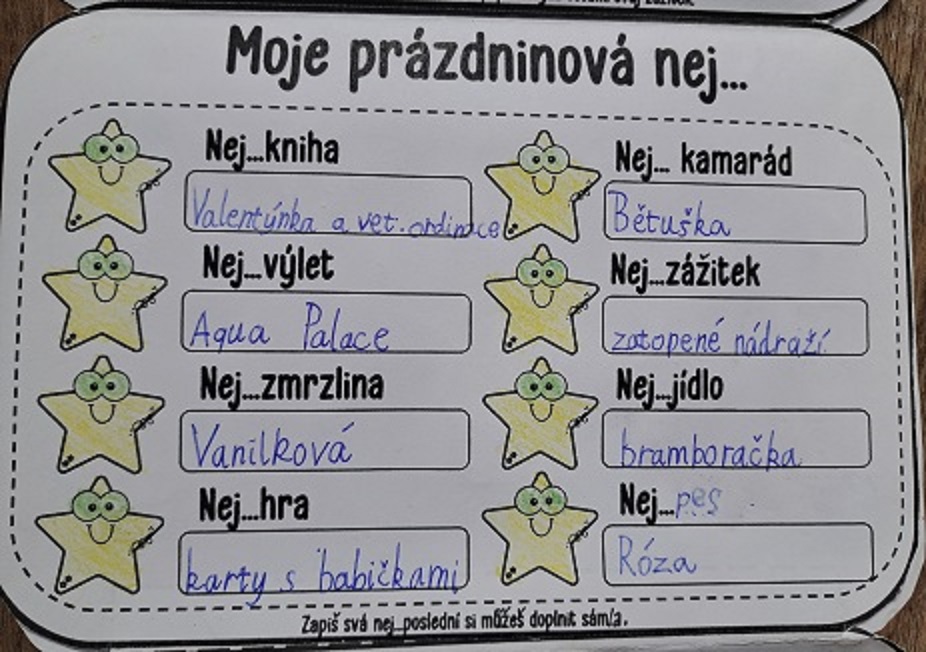 Moje prázdninová nej...
Nej...kniha
Valentýnka a vet. ordinace
Nej... kamarád
Bětuška
Nej...výlet
Aqua Palace
Nej...zážitek
zatopené nádraží
Nej...zmrzlina
Vanilková
Nej...jídlo
bramboračka
Nej...hra
karty s babičkami
Nej...pes
Róza
Zapiš svá nej poslední si můžeš doplnit sám/a.